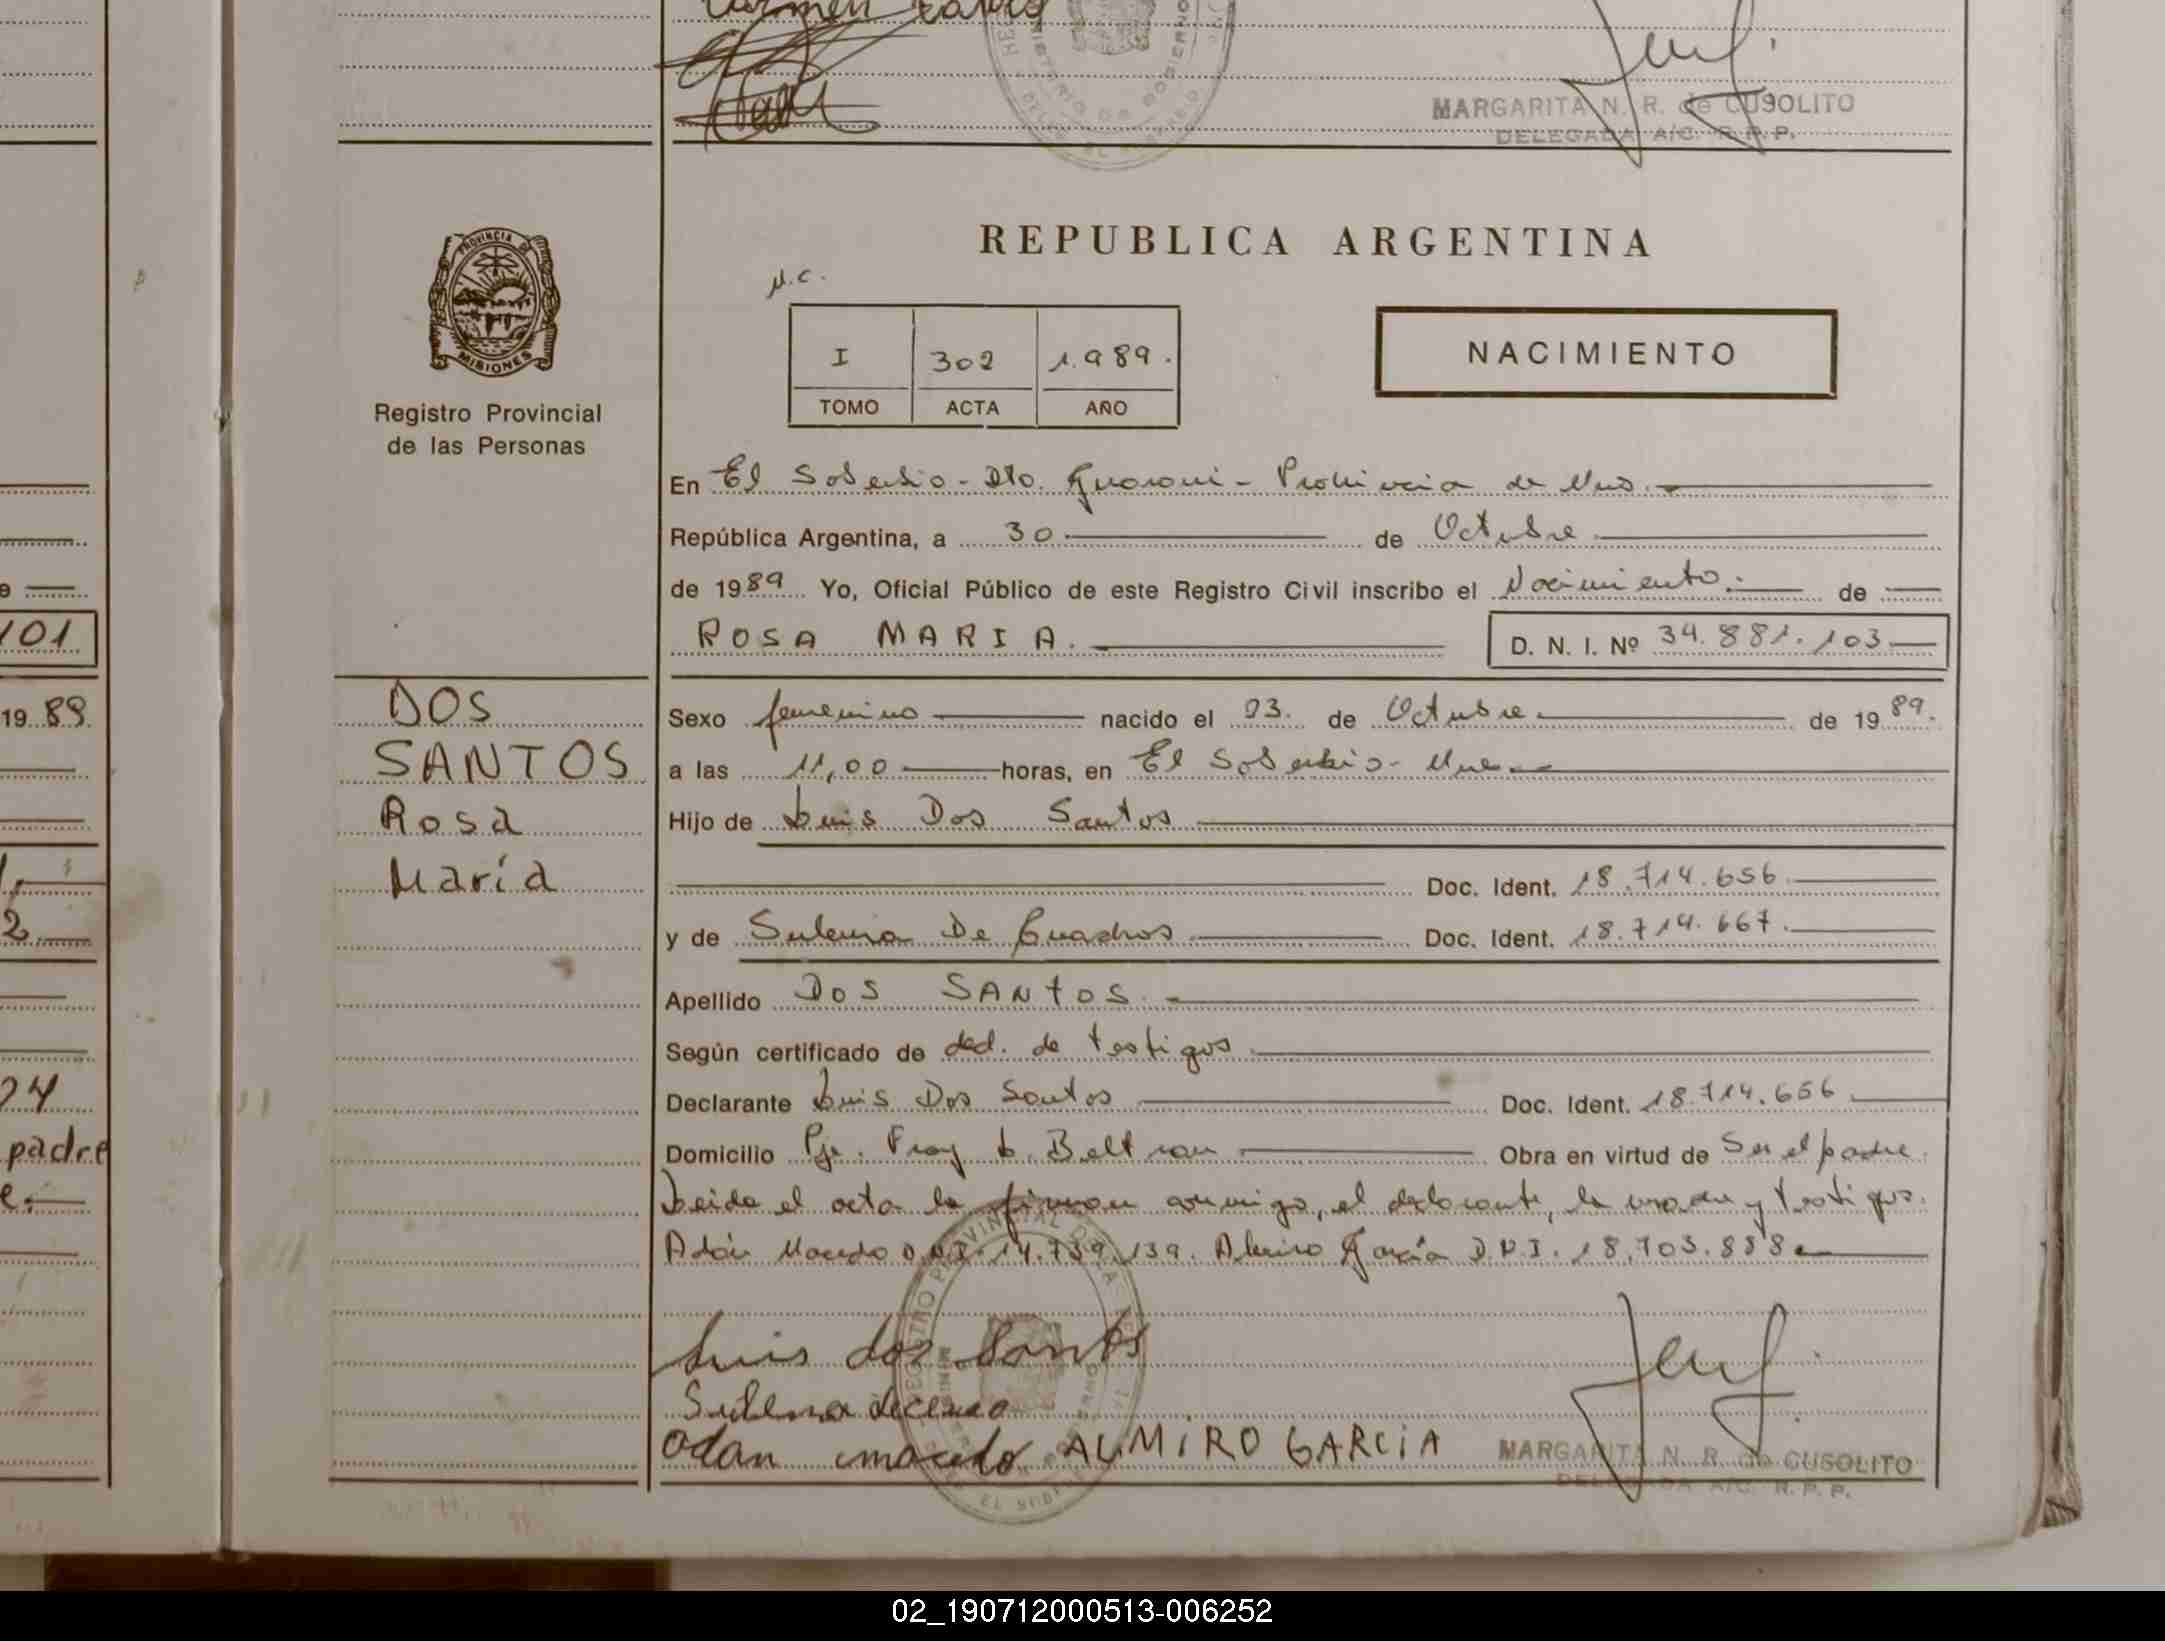 MARGARITA N. R. de CUSOLITO
DELEGADA A/C. R.P.P.
REPUBLICA ARGENTINA
PROVINCIA DE MISIONES
Registro Provincial
de las Personas
I 302 1.989.
TOMO ACTA AÑO
NACIMIENTO
En El Soberbio - Dto. Guaraní - Provincia de Mnes.
República Argentina, a 30 de Octubre
de 1989 Yo, Oficial Público de este Registro Civil inscribo el Nacimiento de
ROSA MARIA. D. N. I. Nº 34.881.103
101
DOS
SANTOS
Rosa
María
1989
Sexo femenino nacido el 03. de Octubre de 1989.
a las 11,00 horas, en El Soberbio - Mnes
Hijo de Luis Dos Santos
Doc. Ident. 18.714.656
y de Sulema De Cuadros Doc. Ident. 18.714.667.
Apellido DOS SANTOS.
Según certificado de decl. de testigos
Declarante Luis Dos Santos Doc. Ident. 18.714.656
Domicilio Pje. Fray L. Beltran Obra en virtud de Ser el padre.
padre
Leida el acta la firman conmigo, el declarante, la madre y testigos.
Adán Macedo D.N.I. 14.739.139. Almiro García D.N.I. 18.703.888
Luis dos Santos
Odan macedo ALMiRO GARCiA
MARGARITA N. R. de CUSOLITO
DELEGADA A/C. R.P.P.
02_190712000513-006252